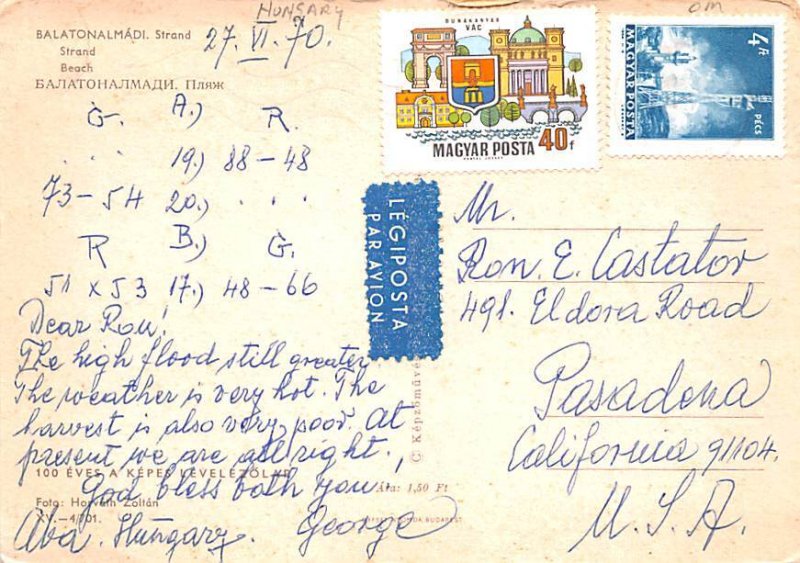 HUNGARY
om
BALATONALMÁDI. Strand
Strand
Beach
БАЛАТОНАЛМАДИ. Пляж
27. VI. 70.
G. A.) R.
. . 19.) 88-48
73-54 20.) . .
R B.) G.
51 x 53 17.) 48-66
Dear Ron!
The high flood still greater.
The weather is very hot. The
harvest is also very poor. At
present we are all right.
God bless both you.,
Aba. Hungary. George
100 ÉVES A KÉPES LEVELEZŐLAP
Foto: Horváth Zoltán
XV.—4/701.
Ára: 1,50 Ft
BUDAPEST
© Képzőművé
LÉGIPOSTA
PAR AVION
DUNAKANYAR
VÁC
MAGYAR POSTA 40f
4 Ft
MAGYAR POSTA
PÉCS
Mr.
Ron. E. Castator
491. Eldora Road
Pasadena
California 91104.
U.S.A.